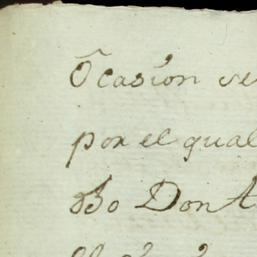 Ocasion se
por el qual
dho Don A